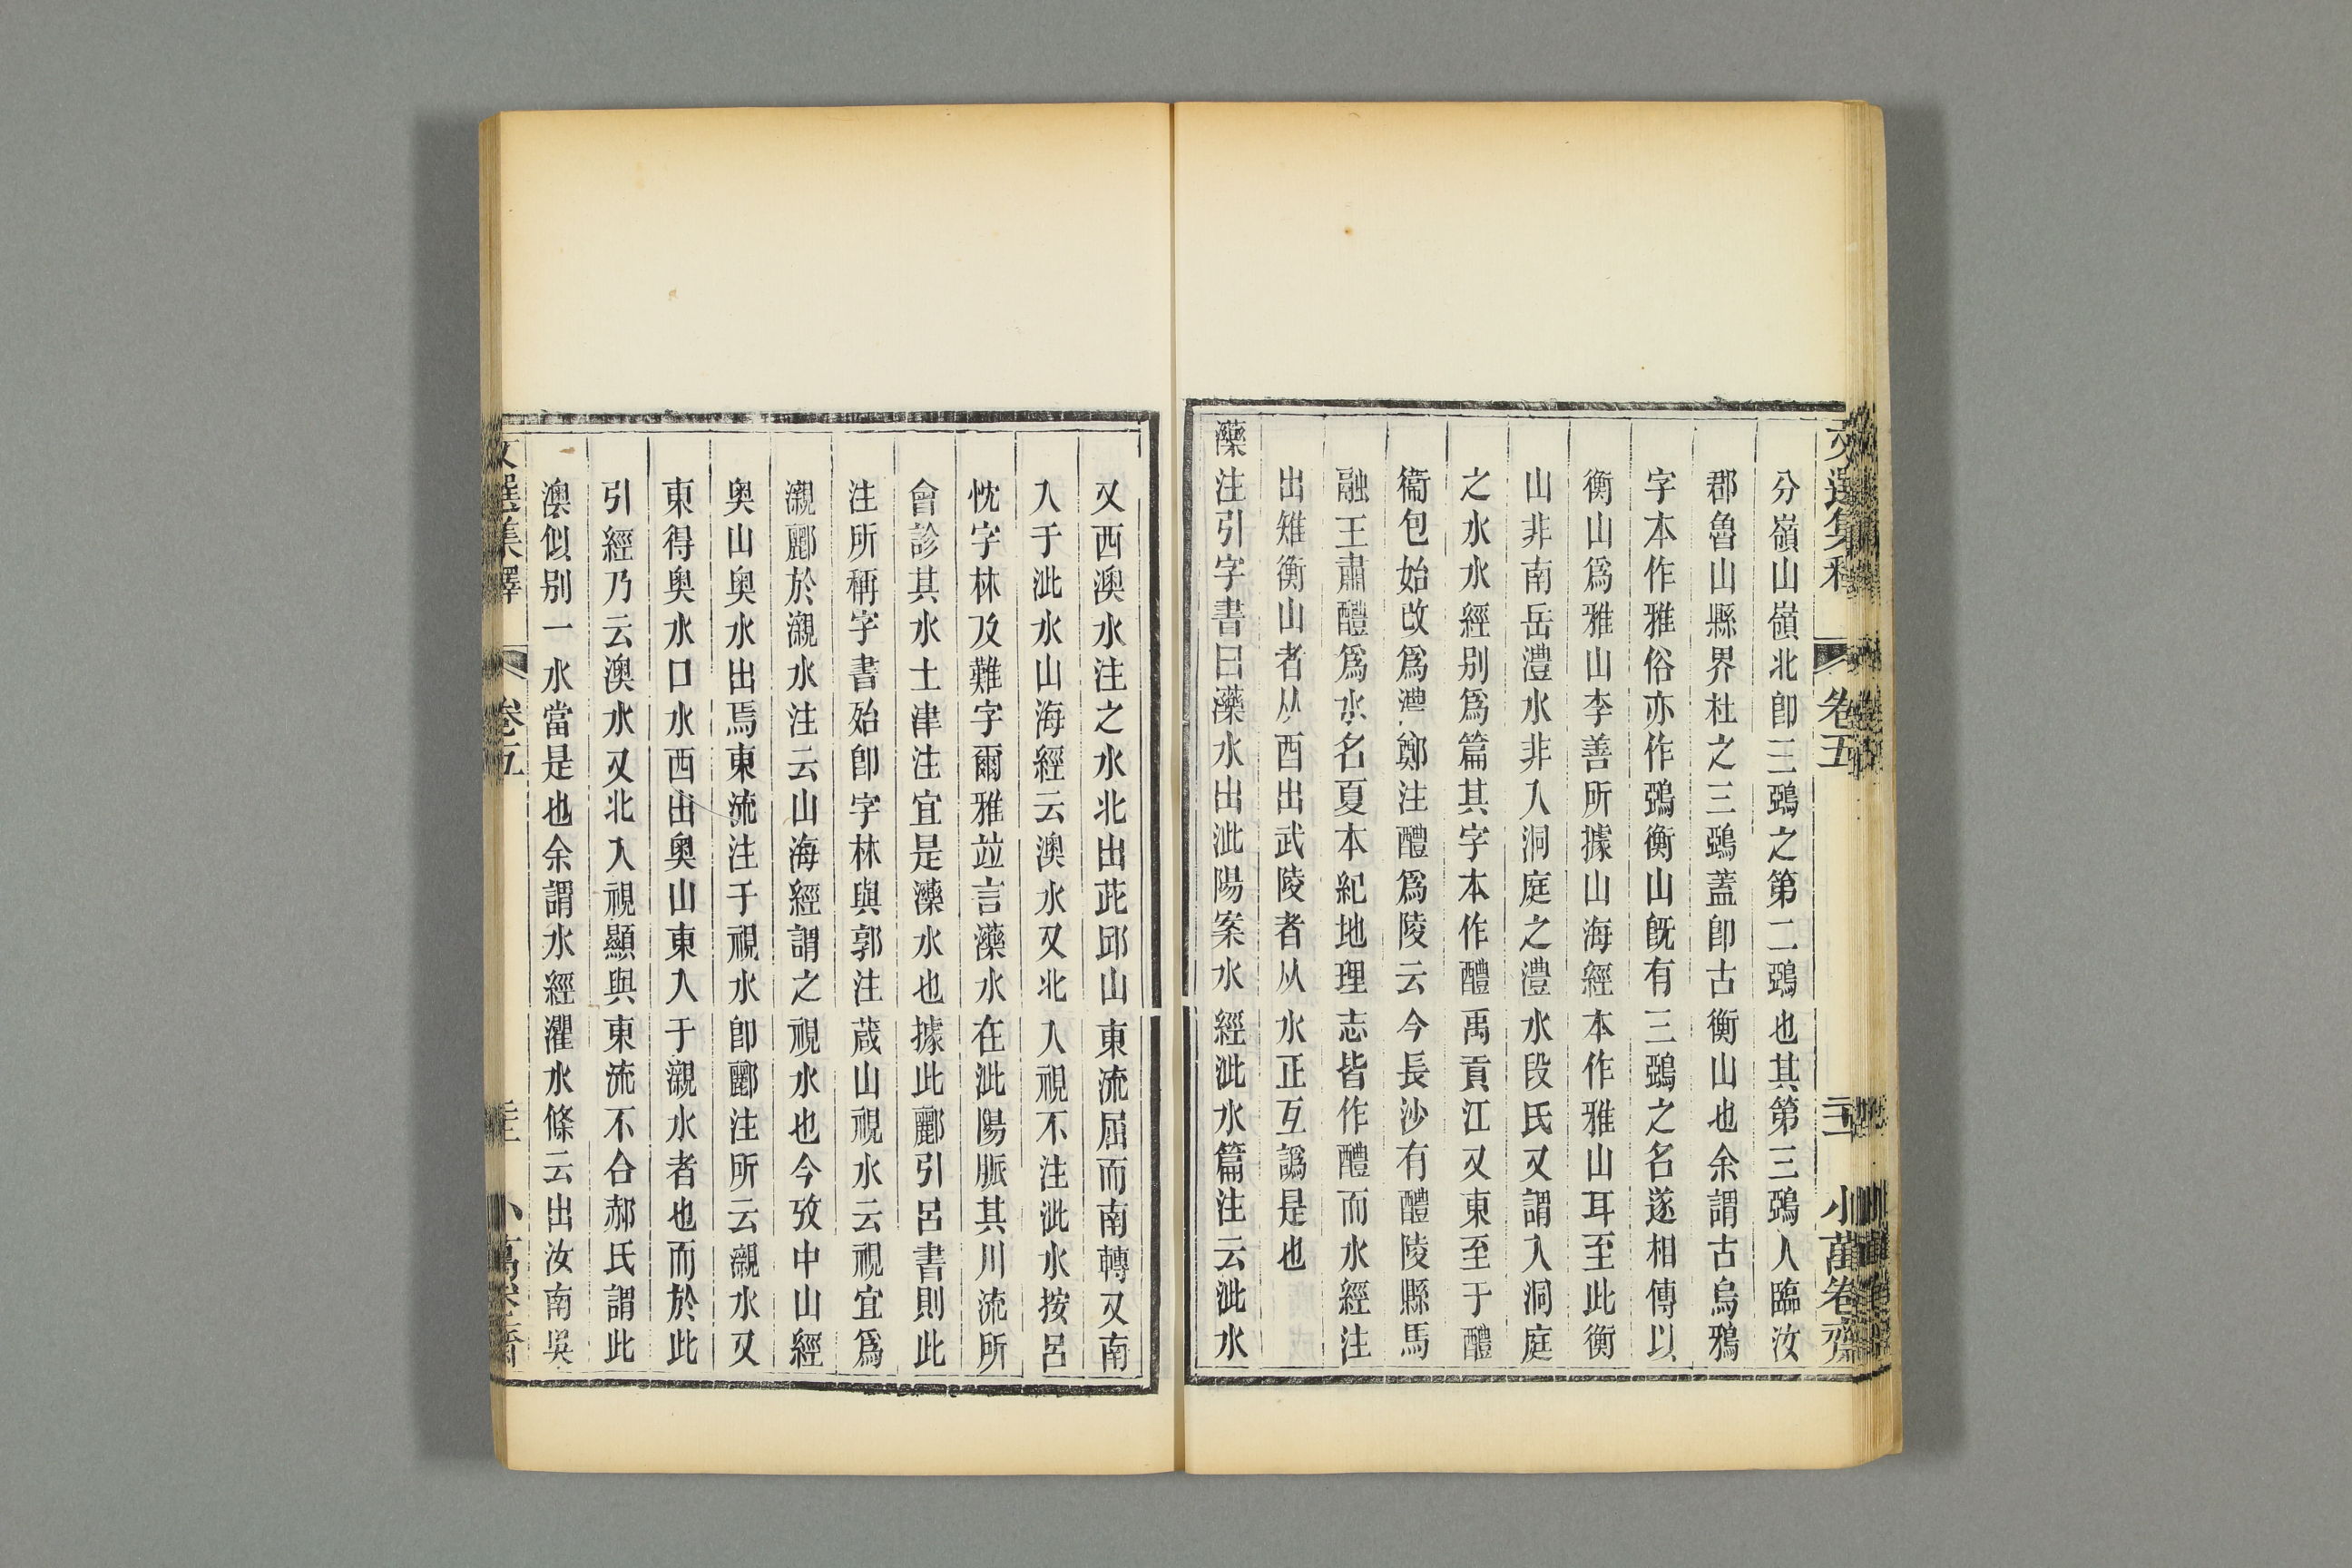 文選集釋 卷五 三 小萬卷齋
分嶺山嶺北卽三鵶之第二鵶也其第三鵶入臨汝
郡魯山縣界杜之三鵶蓋卽古衡山也余謂古烏鴉
字本作雅俗亦作鵶衡山旣有三鵶之名遂相傳以
衡山爲雅山李善所據山海經本作雅山耳至此衡
山非南岳澧水非入洞庭之澧水段氏又謂入洞庭
之水水經别爲篇其字本作醴禹貢江又東至于醴
衞包始改爲澧鄭注醴爲陵云今長沙有醴陵縣馬
融王肅醴爲水名夏本紀地理志皆作醴而水經注
出雉衡山者从酉出武陵者从水正互譌是也
灤注引字書曰灤水出泚陽案水經泚水篇注云泚水
又西澳水注之水北出茈邱山東流屈而南轉又南
入于泚水山海經云澳水又北入視不注泚水按呂
忱字林及難字爾雅竝言灤水在泚陽脈其川流所
會診其水土津注宜是灤水也據此酈引呂書則此
注所稱字書殆卽字林與郭注葴山視水云視宜爲
瀙酈於瀙水注云山海經謂之視水也今攷中山經
奥山奥水出焉東流注于視水卽酈注所云瀙水又
東得奥水口水西出奥山東入于瀙水者也而於此
引經乃云澳水又北入視顯與東流不合郝氏謂此
澳似别一水當是也余謂水經灈水條云出汝南吳
選集釋 卷五 小萬卷齋